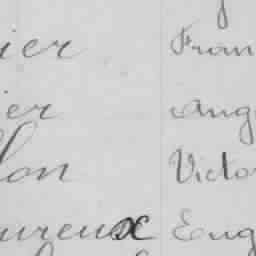 ier Fran
ier Ang
lon Victo
ureux Eug